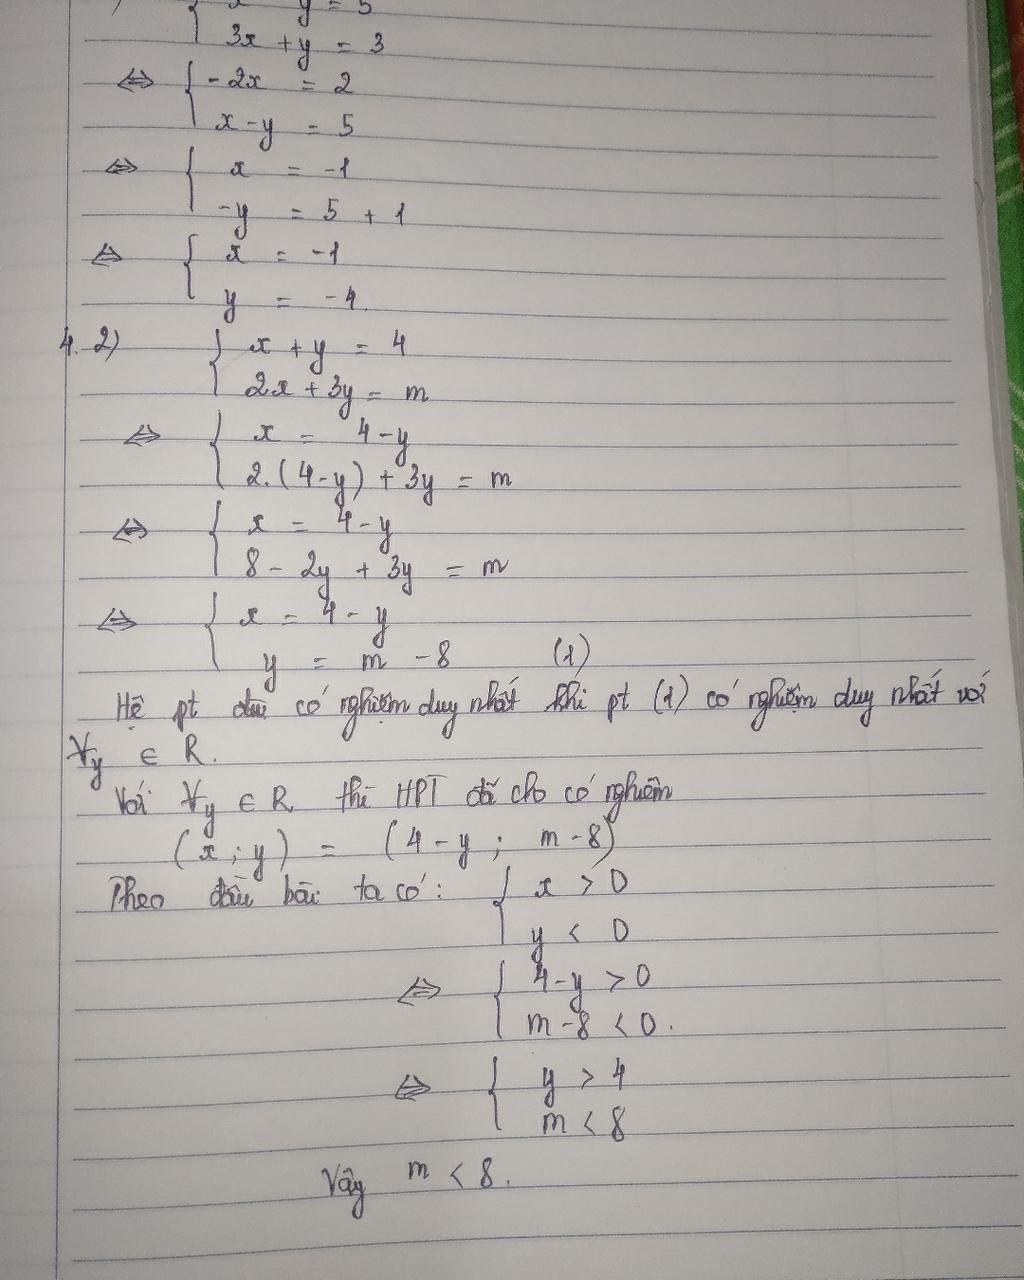 y = 5
3x + y = 3
⇔ { -2x = 2
x - y = 5
⇔ { x = -1
-y = 5 + 1
⇔ { x = -1
y = -4.
4. 2) { x + y = 4
2x + 3y = m
⇔ { x = 4 - y
2.(4 - y) + 3y = m
⇔ { x = 4 - y
8 - 2y + 3y = m
⇔ { x = 4 - y
y = m - 8 (1)
Hệ pt có nghiệm duy nhất khi pt (1) có nghiệm duy nhất với
∀y ∈ R.
Với ∀y ∈ R thì HPT đã cho có nghiệm
(x ; y) = (4 - y ; m - 8)
Theo đầu bài ta có: { x > 0
y < 0
⇔ { 4 - y > 0
m - 8 < 0.
⇔ { y > 4
m < 8
Vậy m < 8.